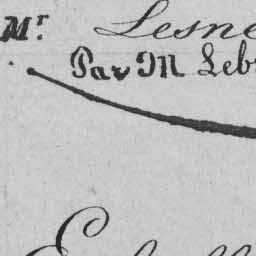 Mr. Lesne
Par M Leb